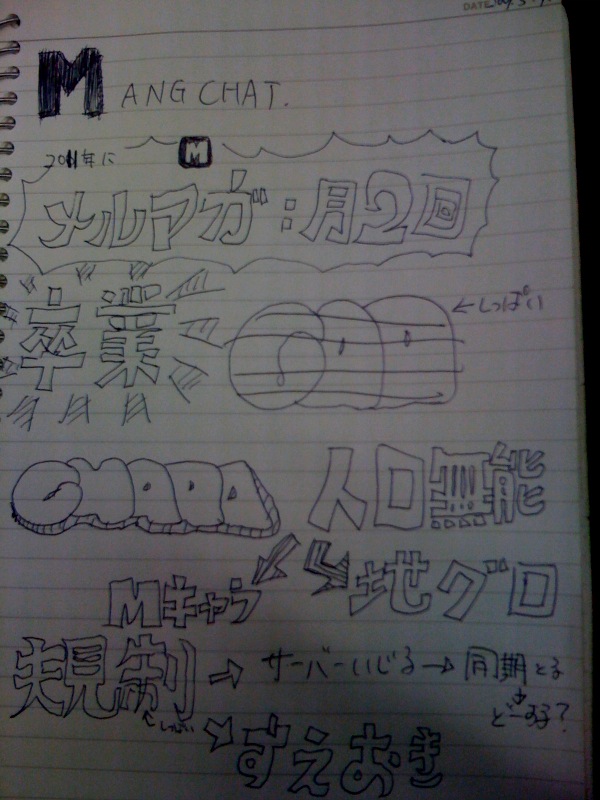 DATE
M ANG CHAT.
2011年に M
メルマガ:月2回
卒業
←しっぱい
人口無能
Mキャラ
地グロ
規制 → サーバーいじる→同期とる
どーする?
すえおき